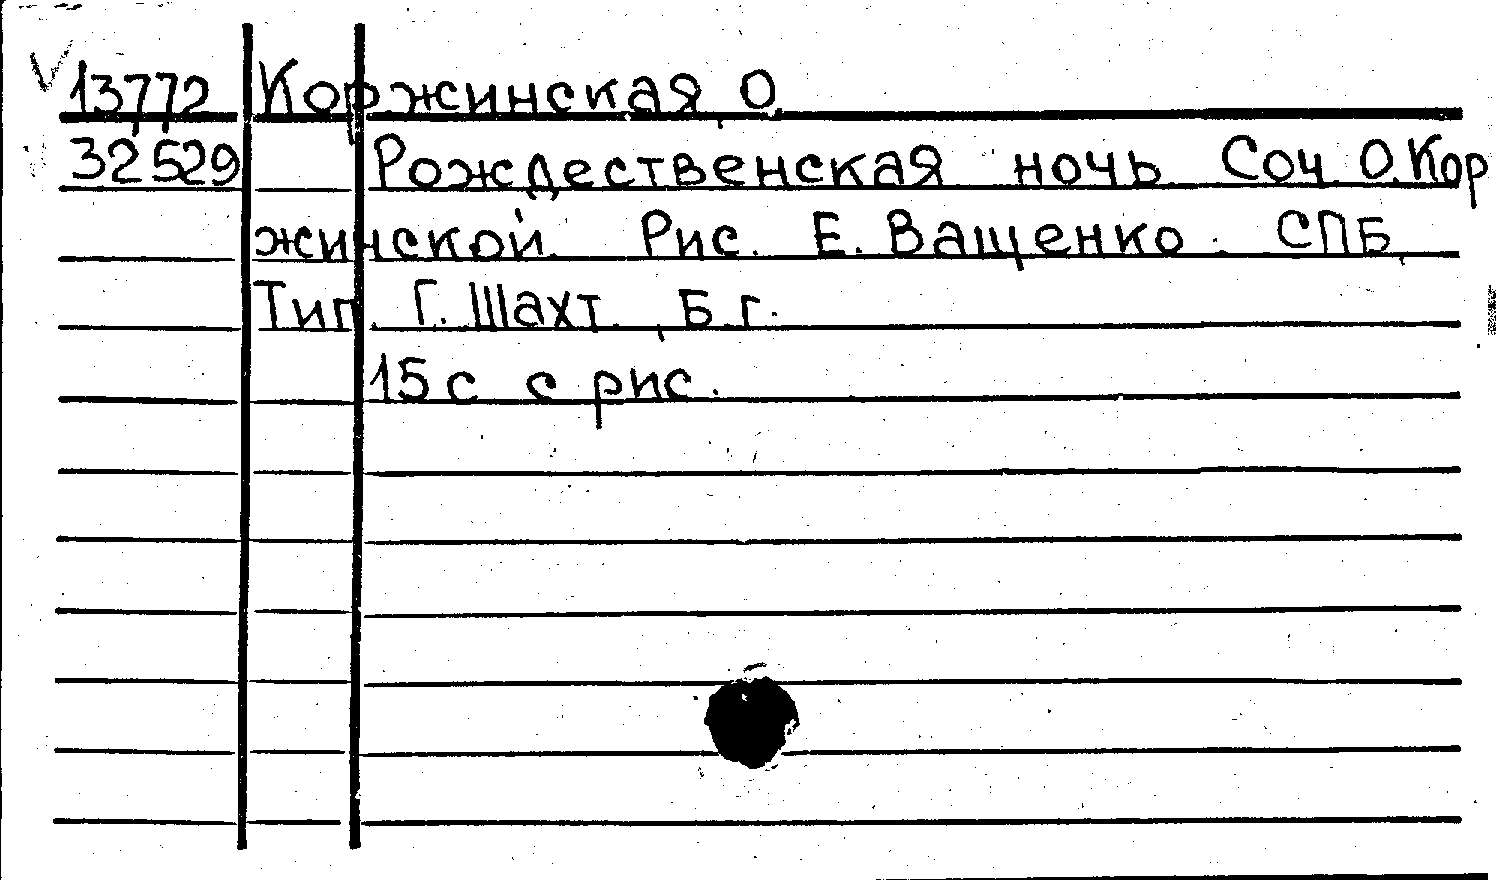 13772 Коржинская, О.
32529 Рождественская ночь Соч. О. Кор
жинской. Рис. Е. Ващенко. СПБ,
Тип. Г. Шахт., Б.г.
15 с с рис.